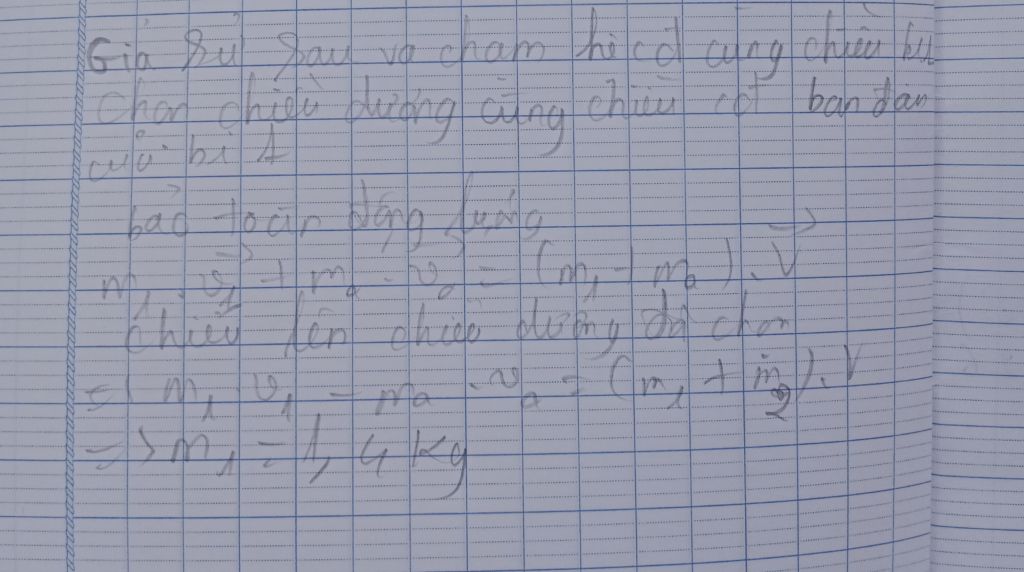 Giả sử sau va chạm hệ cđ cùng chiều bi
Chọn chiều dương cùng chiều cđ ban đầu
của bi A
bảo toàn động lượng
m₁ . v₁ + m₂ . v₂ = (m₁ + m₂) . V
Chiếu lên chiều dương đã chọn
=> m₁ v₁ - m₂ . v₂ = (m₁ + m₂) . V
=> m₁ = 1,4 kg